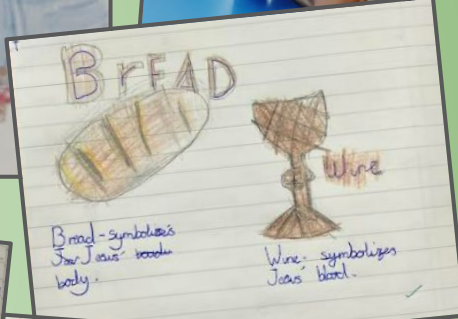 BrEAD
Wine
Bread - symbolizes
Jesus'
body.
Wine - symbolizes
Jesus' blood.